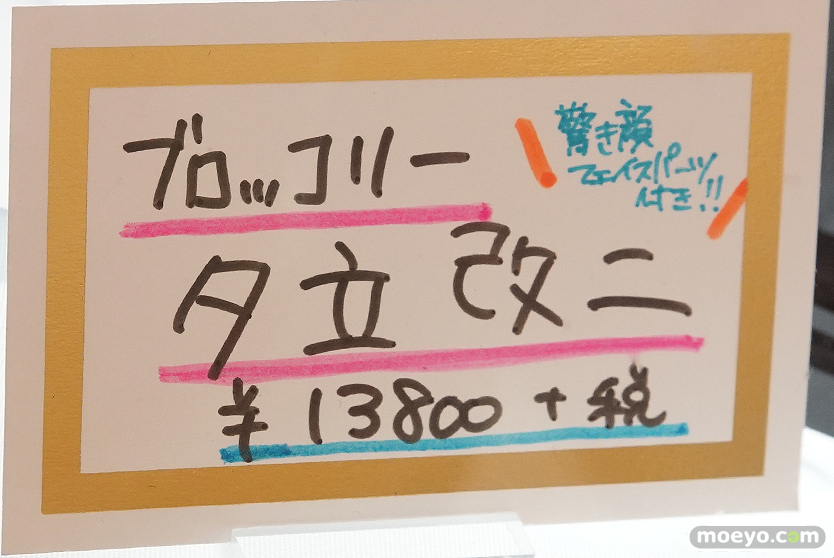 ブロッコリー
驚き顔
フェイスパーツ
付き!!
夕立改二
¥13800+税
moeyo.com